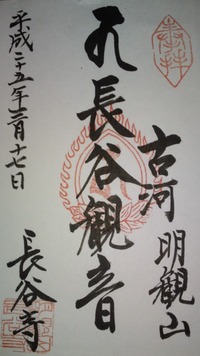 奉拝
古河 明観山
長谷観音
平成二十五年三月十七日
長谷寺